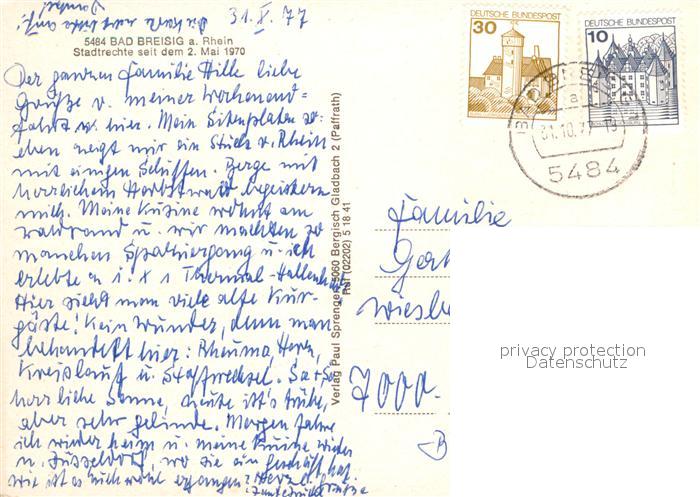 31. X. 77
5484 BAD BREISIG a. Rhein
Stadtrechte seit dem 2. Mai 1970
Der ganzen Familie Hille liebe
Grüße v. meiner Wochenend-
fahrt v. hier. Mein Sitzplatz
eben zeigt mir ein Stück v. Rhein
mit einigen Schiffen. Berge mit
herrlichem Herbstwald begeistern
mich. Meine Kusine wohnt am
Waldrand u. wir machten so
manchen Spaziergang u. ich
erlebte 1 x 1 Thermal-Hallenbad
Hier sieht man viele alte Kur-
gäste! Kein Wunder, denn man
behandelt hier: Rheuma, Herz,
Kreislauf u. Stoffwechsel. Sa + So
herrliche Sonne, heute ist's trübe,
aber sehr gelinde. Morgen fahre
ich wieder heim u. meine Kusine wieder
n. Düsseldorf, wo sie ein Geschäft hat.
Wie ist es euch wohl ergangen? Herzl. Grüße
Verlag Paul Sprenger, 5060 Bergisch Gladbach 2 (Paffrath)
Ruf (02202) 5 18 41
30 DEUTSCHE BUNDESPOST
DEUTSCHE BUNDESPOST 10
31.10.77
5484
Familie
Wiesb
7000
privacy protection
Datenschutz